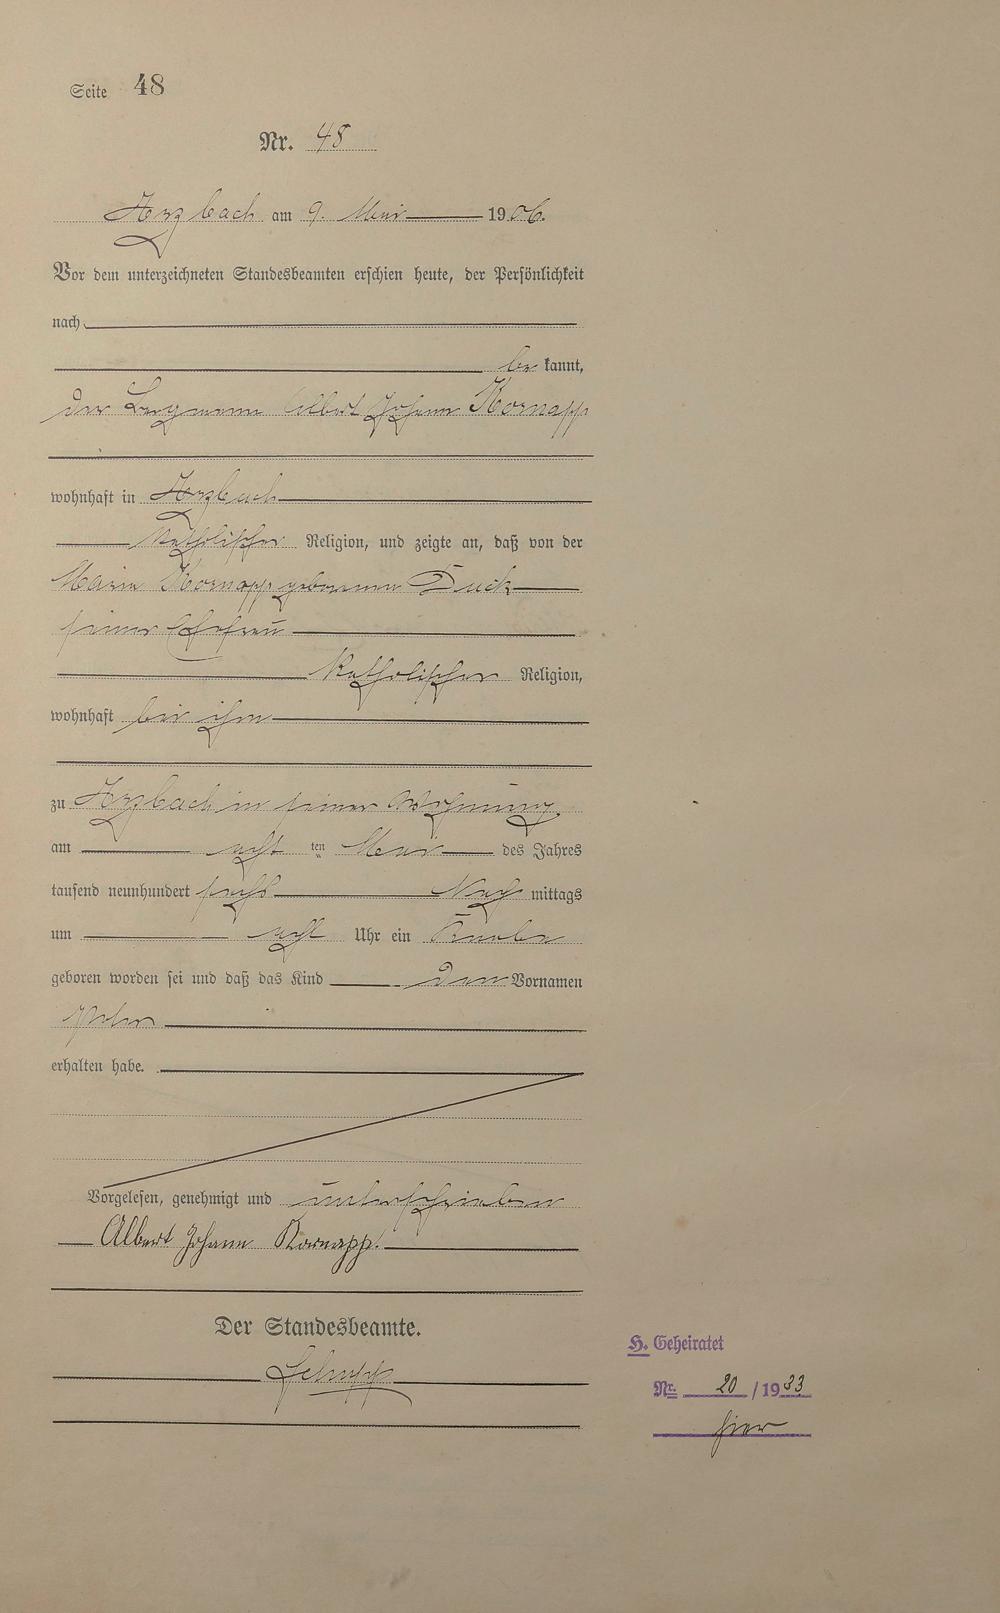 Seite 48
Nr. 48
am 9. Mai 1906.
Vor dem unterzeichneten Standesbeamten erschien heute, der Persönlichkeit
nach
be kannt,
der Bergmann Albert Johann Kornapp
wohnhaft in
katholischer Religion, und zeigte an, daß von der
Maria Kornapp geborenen Duck
seiner Ehefrau
katholischer Religion,
wohnhaft bei ihm
zu in seiner Wohnung
am acht ten Mai des Jahres
tausend neunhundert sechs Nach mittags
um acht Uhr ein Knabe
geboren worden sei und daß das Kind den Vornamen
Peter
erhalten habe.
Vorgelesen, genehmigt und unterschrieben
Albert Johann Kornapp.
Der Standesbeamte.
H. Geheiratet
Nr. 20 / 1933
hier